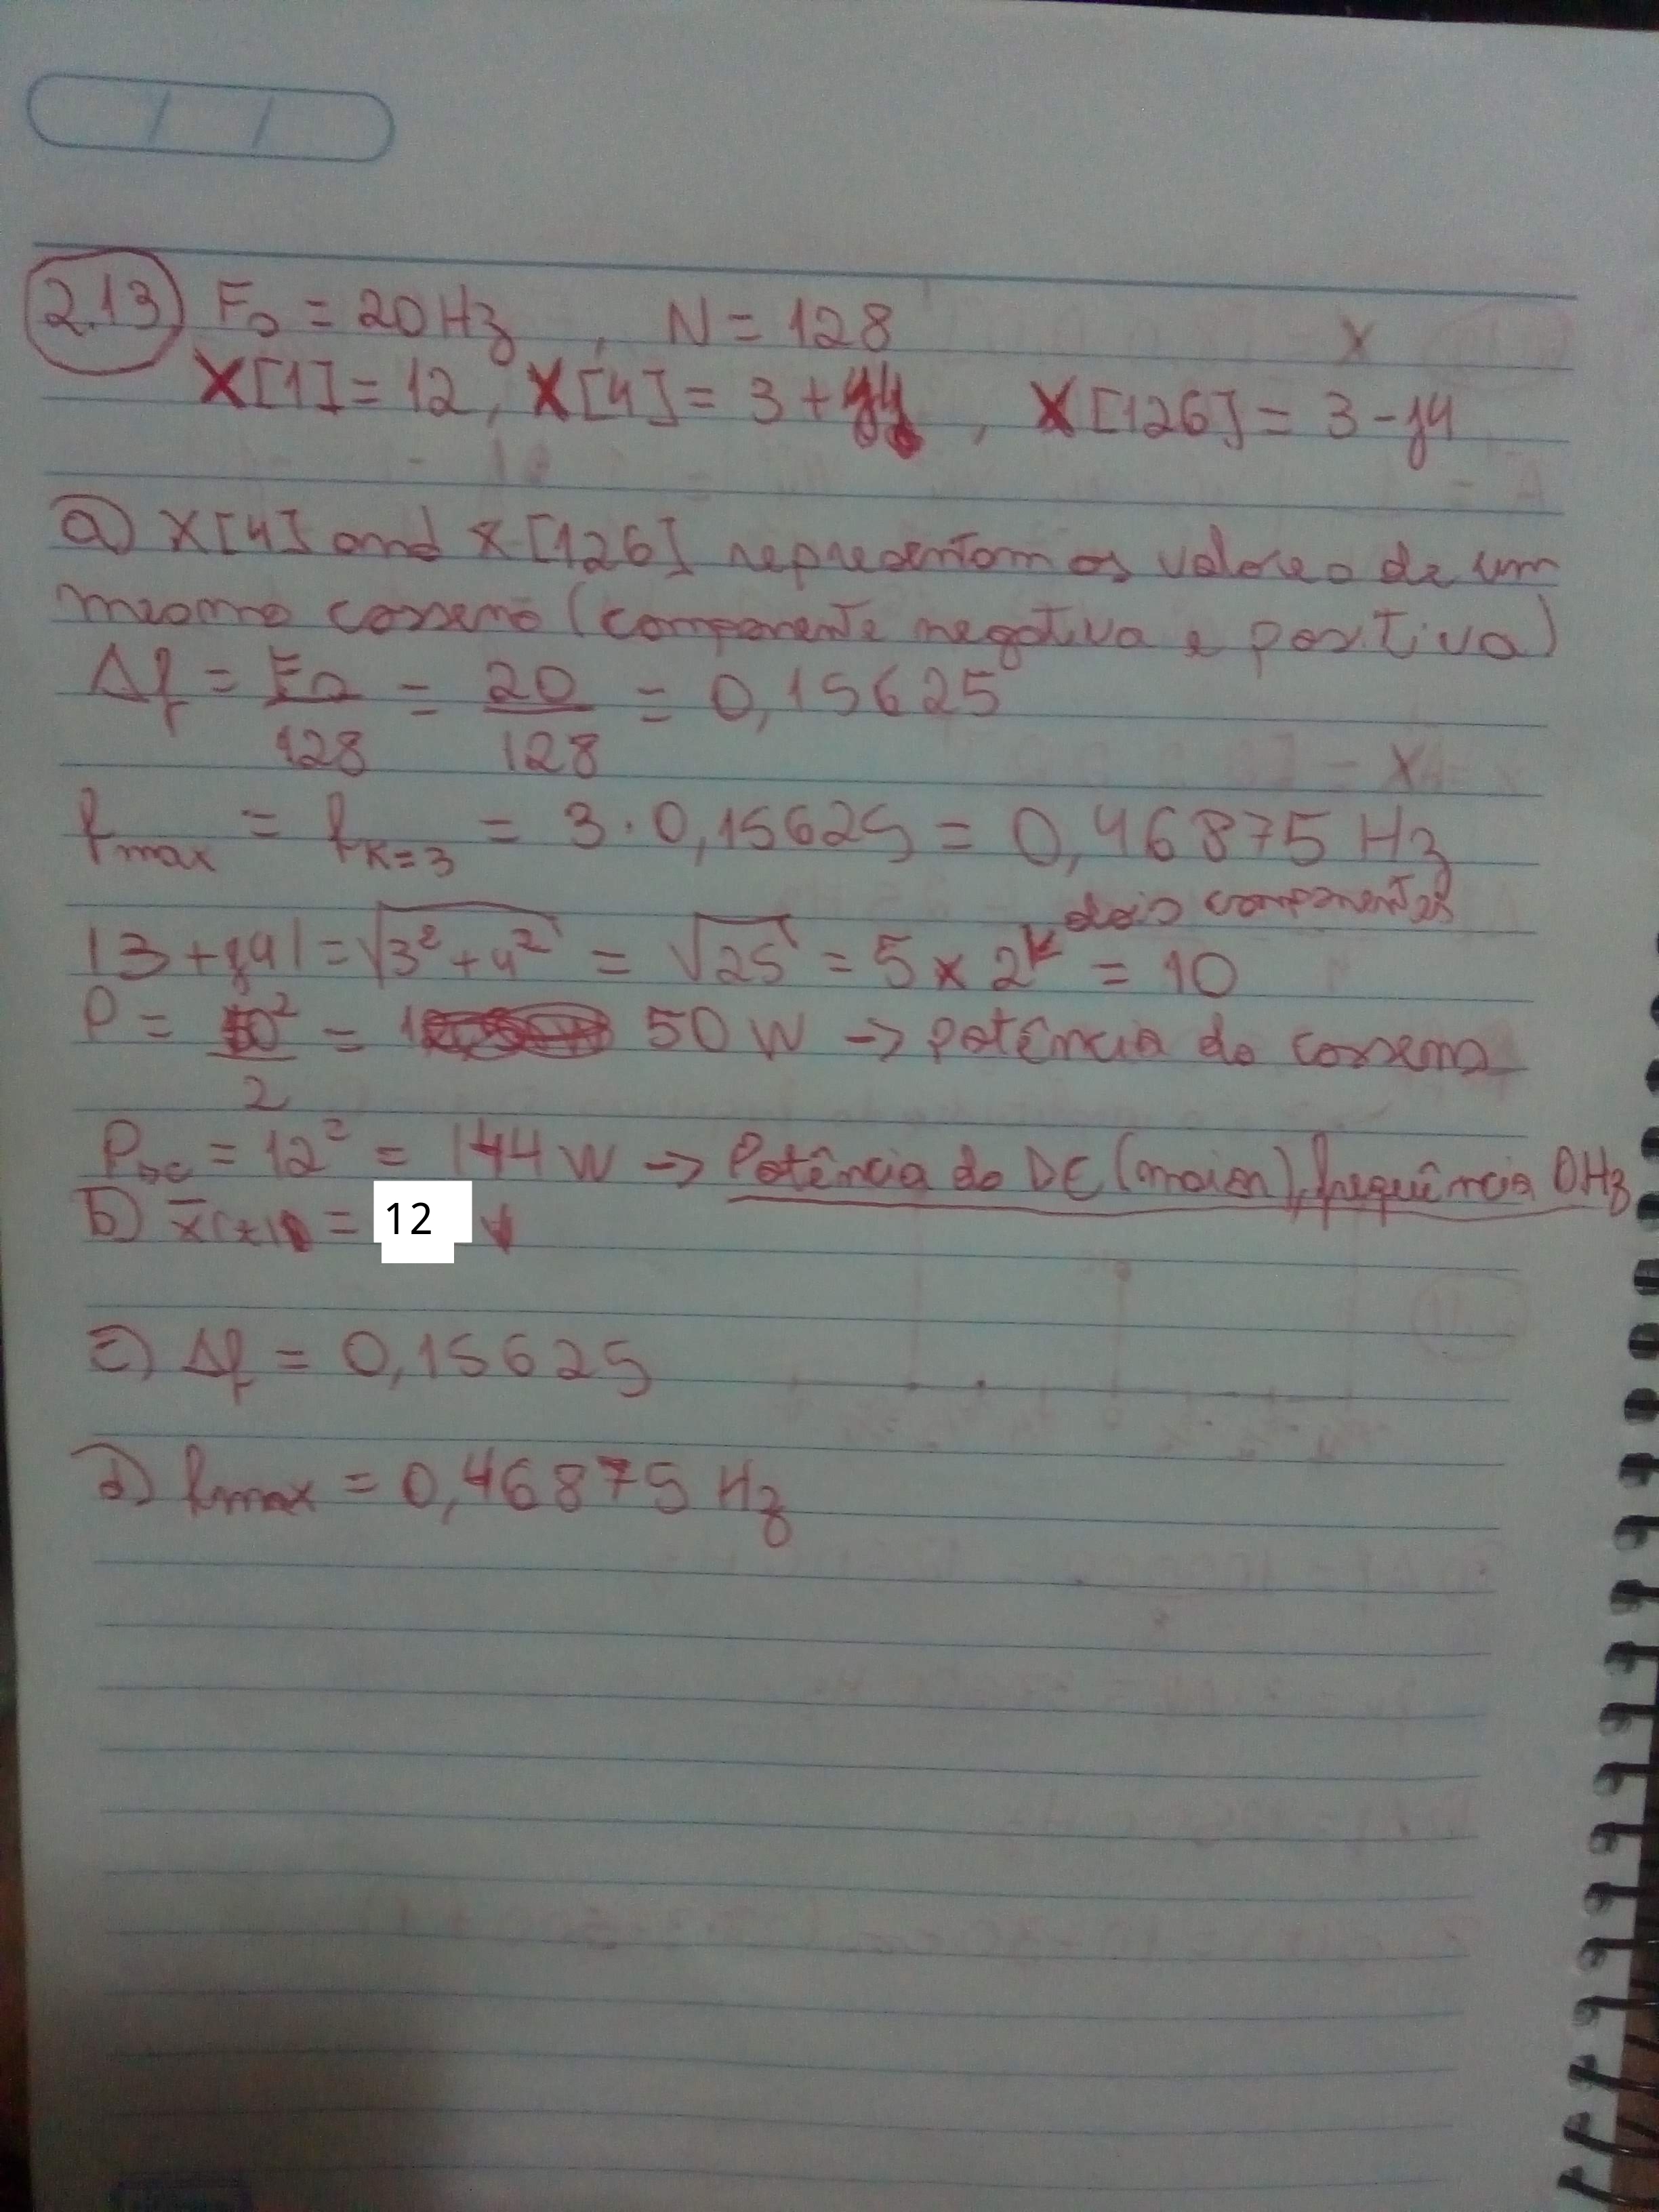 2.13 Fs = 20 Hz , N = 128
X[1] = 12, X[4] = 3 + j4 , X[126] = 3 - j4
a) X[4] and X[126] representam os valores de um
mesmo cosseno (componente negativa e positiva)
Δf = Fs/128 = 20/128 = 0,15625
fmax = fk=3 = 3 · 0,15625 = 0,46875 Hz
dois componentes
|3 + j4| = √3² + 4² = √25 = 5 x 2 = 10
P = 10²/2 = 50 W -> potência do cosseno
PDC = 12² = 144 W -> Potência do DC (maior), frequência 0Hz
b) x(t) = 12
c) Δf = 0,15625
d) fmax = 0,46875 Hz